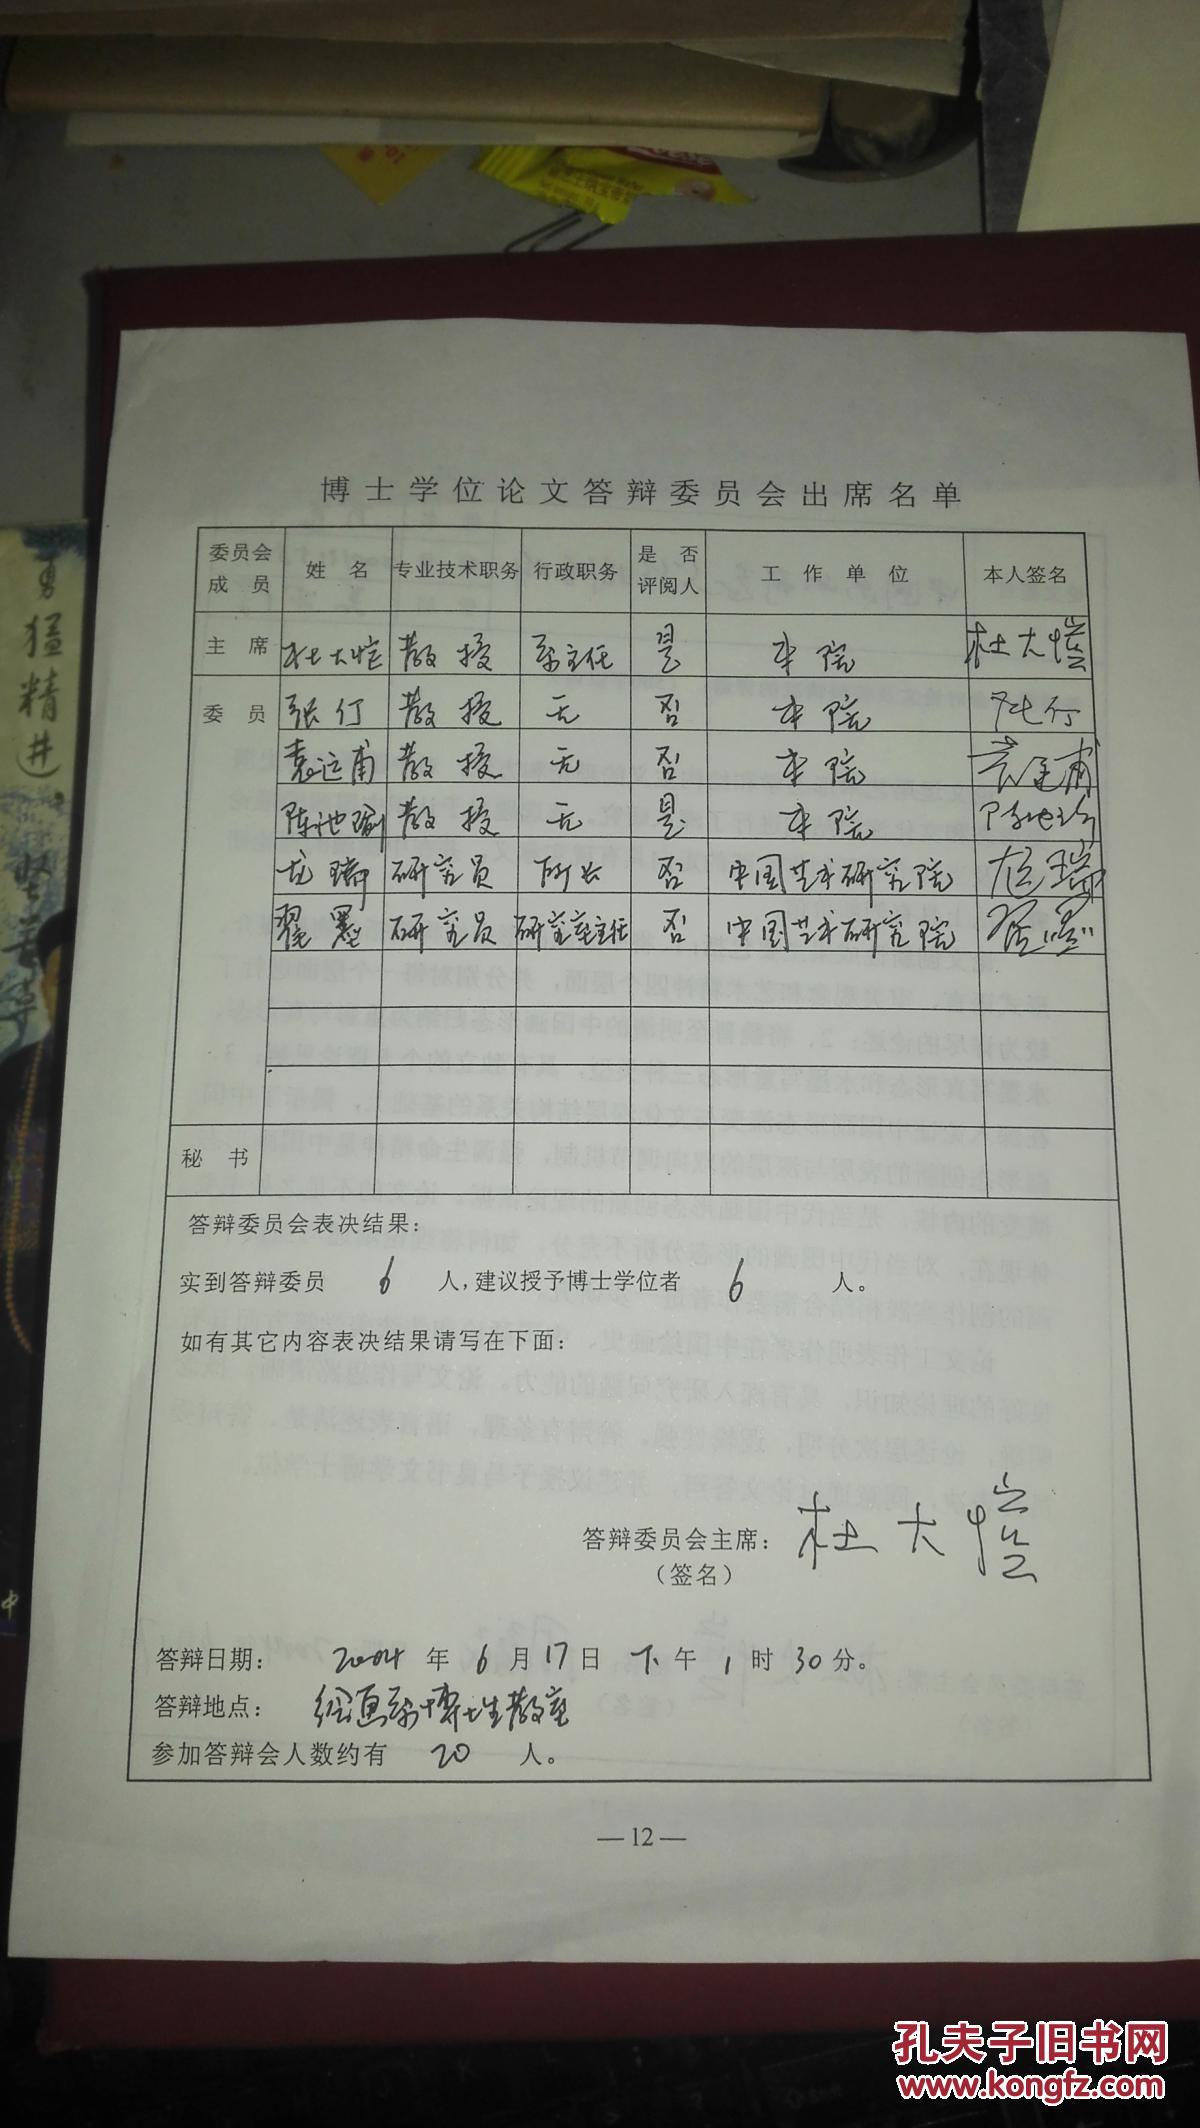 博士学位论文答辩委员会出席名单
委员会成员 姓名 专业技术职务 行政职务 是否评阅人 工作单位 本人签名
主席 杜大恺 教授 系主任 是 本院 杜大恺
委员 张仃 教授 无 否 本院 张仃
袁运甫 教授 无 否 本院 袁运甫
陈池瑜 教授 无 是 本院 陈池瑜
龙瑞 研究员 所长 否 中国艺术研究院 龙瑞
翟墨 研究员 研究室主任 否 中国艺术研究院 翟墨
秘书
答辩委员会表决结果：
实到答辩委员 6 人，建议授予博士学位者 6 人。
如有其它内容表决结果请写在下面：
答辩委员会主席： 杜大恺
（签名）
答辩日期： 2004 年 6 月 17 日 下 午 1 时 30 分。
答辩地点： 绘画系博士生教室
参加答辩会人数约有 20 人。
—12—
勇猛精进
孔夫子旧书网
www.kongfz.com